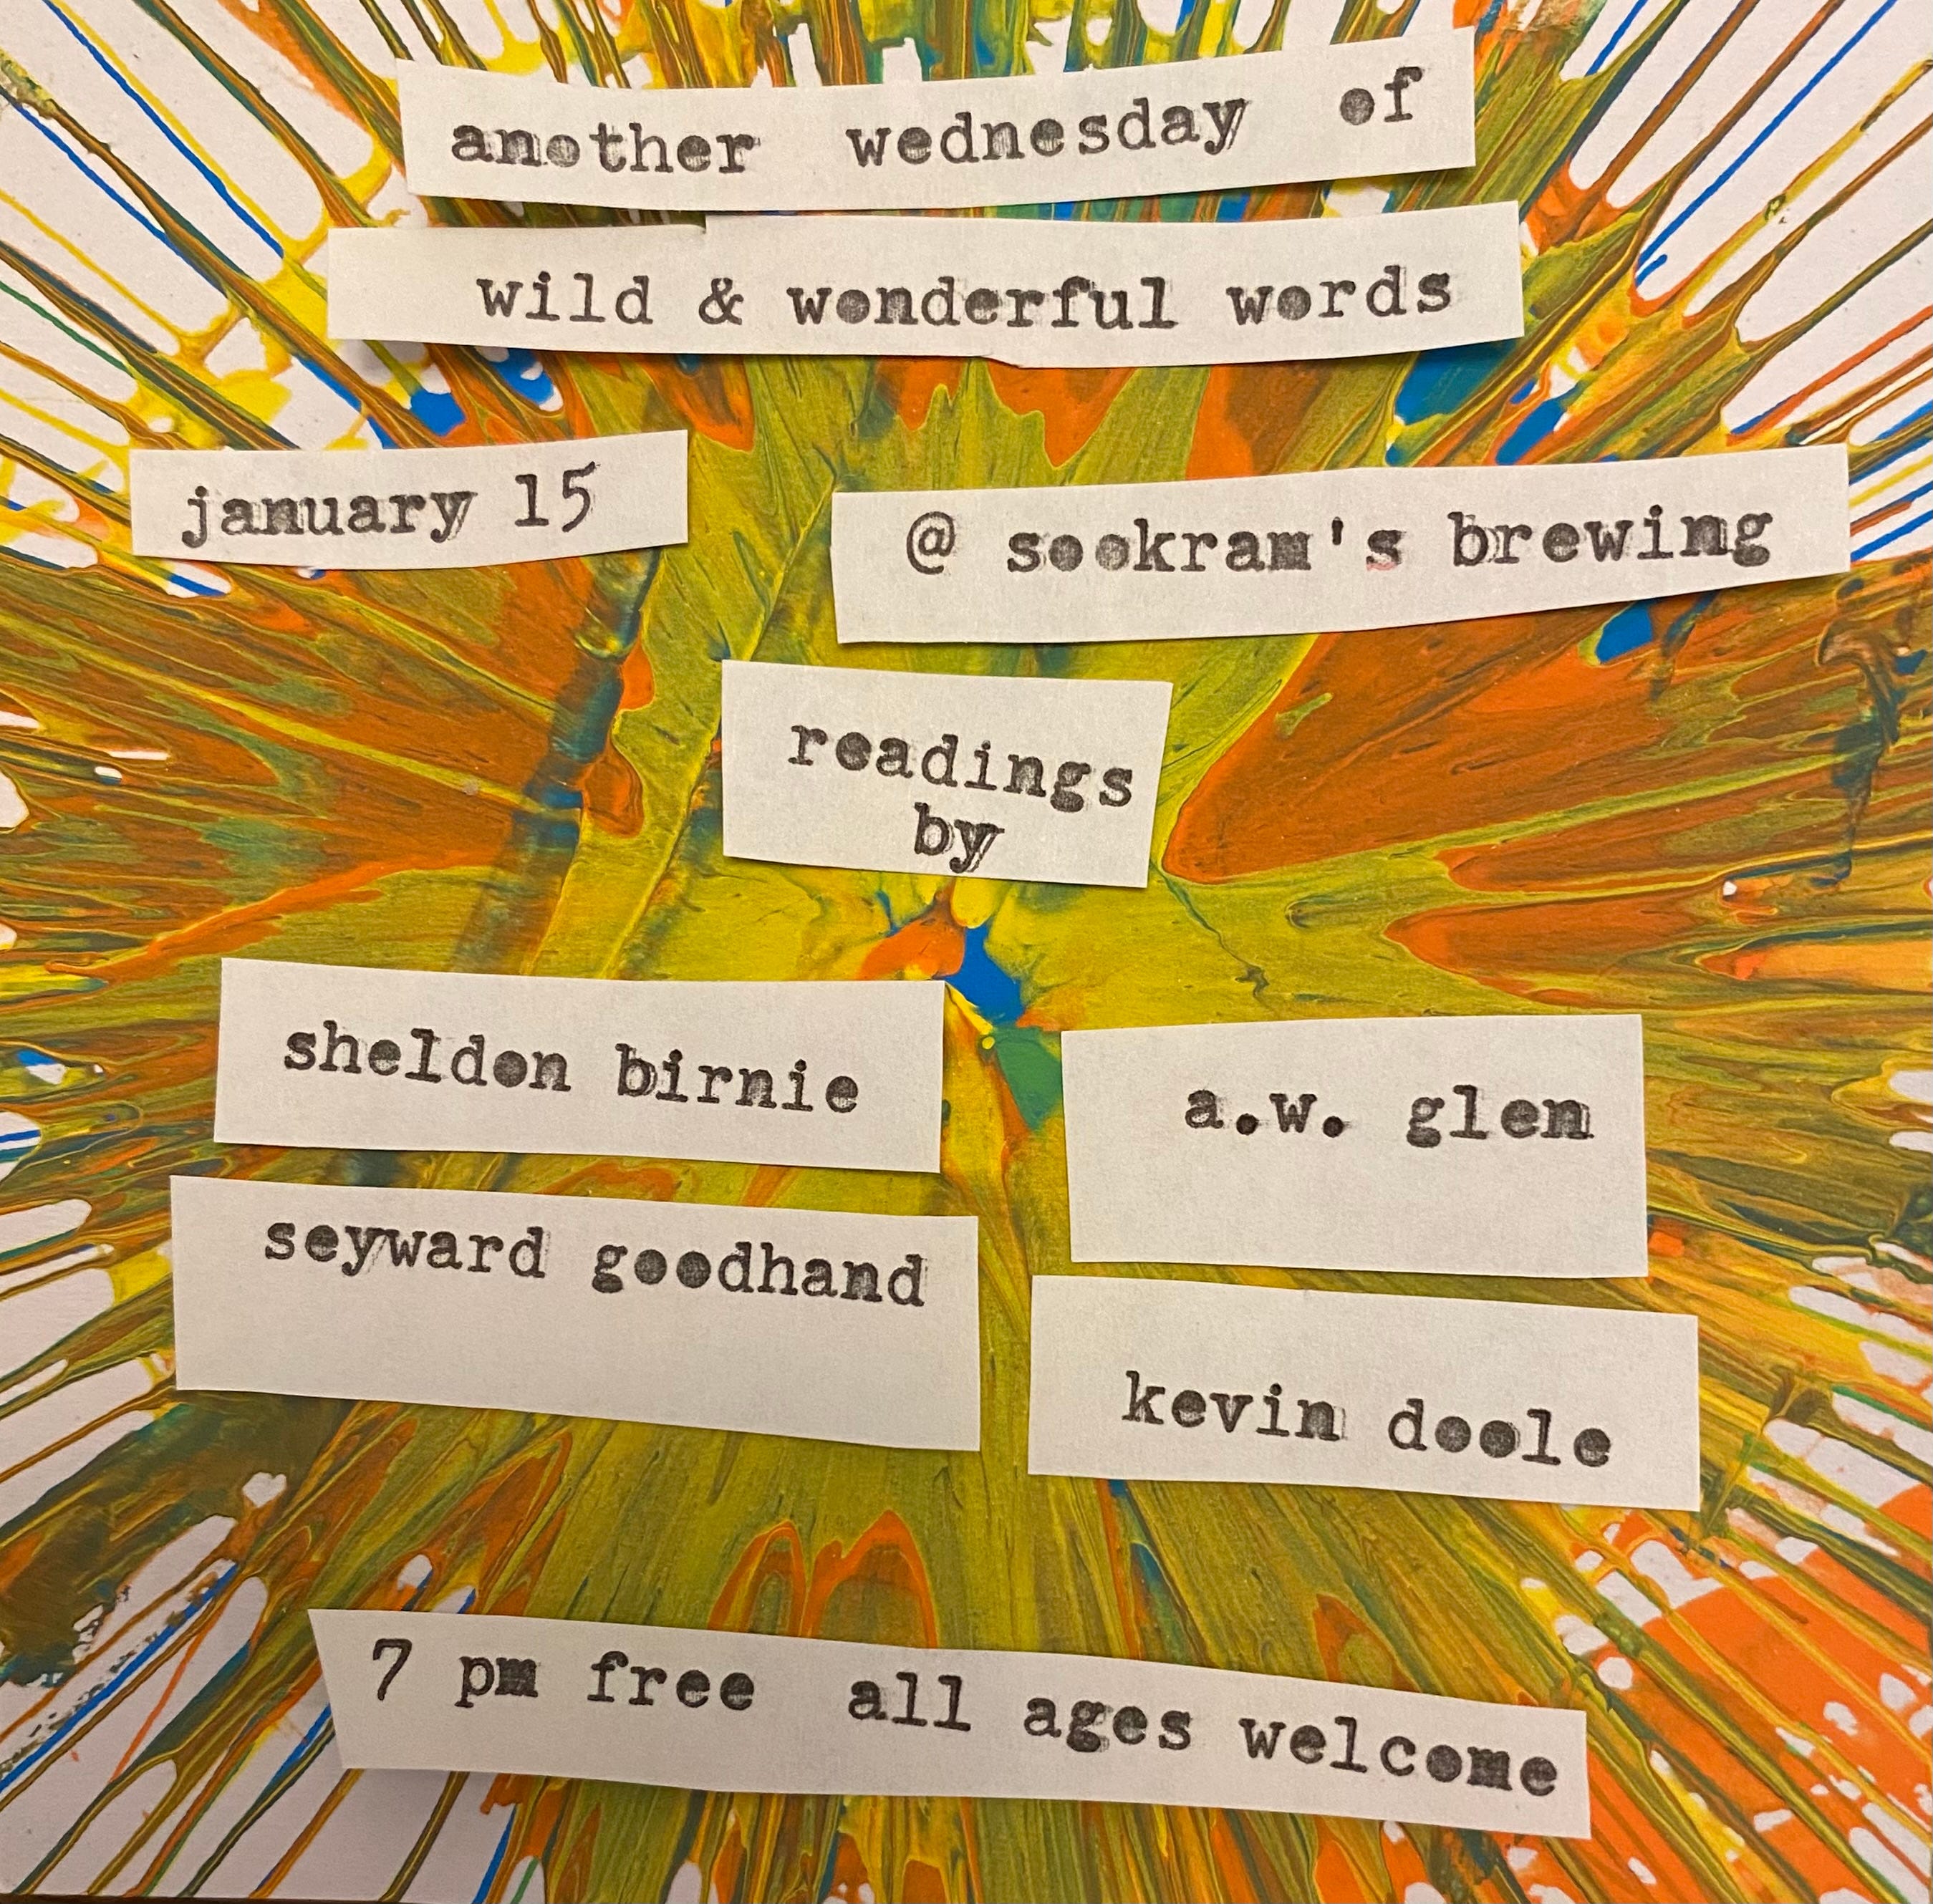 another wednesday of
wild & wonderful words
january 15
@ sookram's brewing
readings
by
sheldon birnie
a.w. glen
seyward goodhand
kevin doole
7 pm free all ages welcome